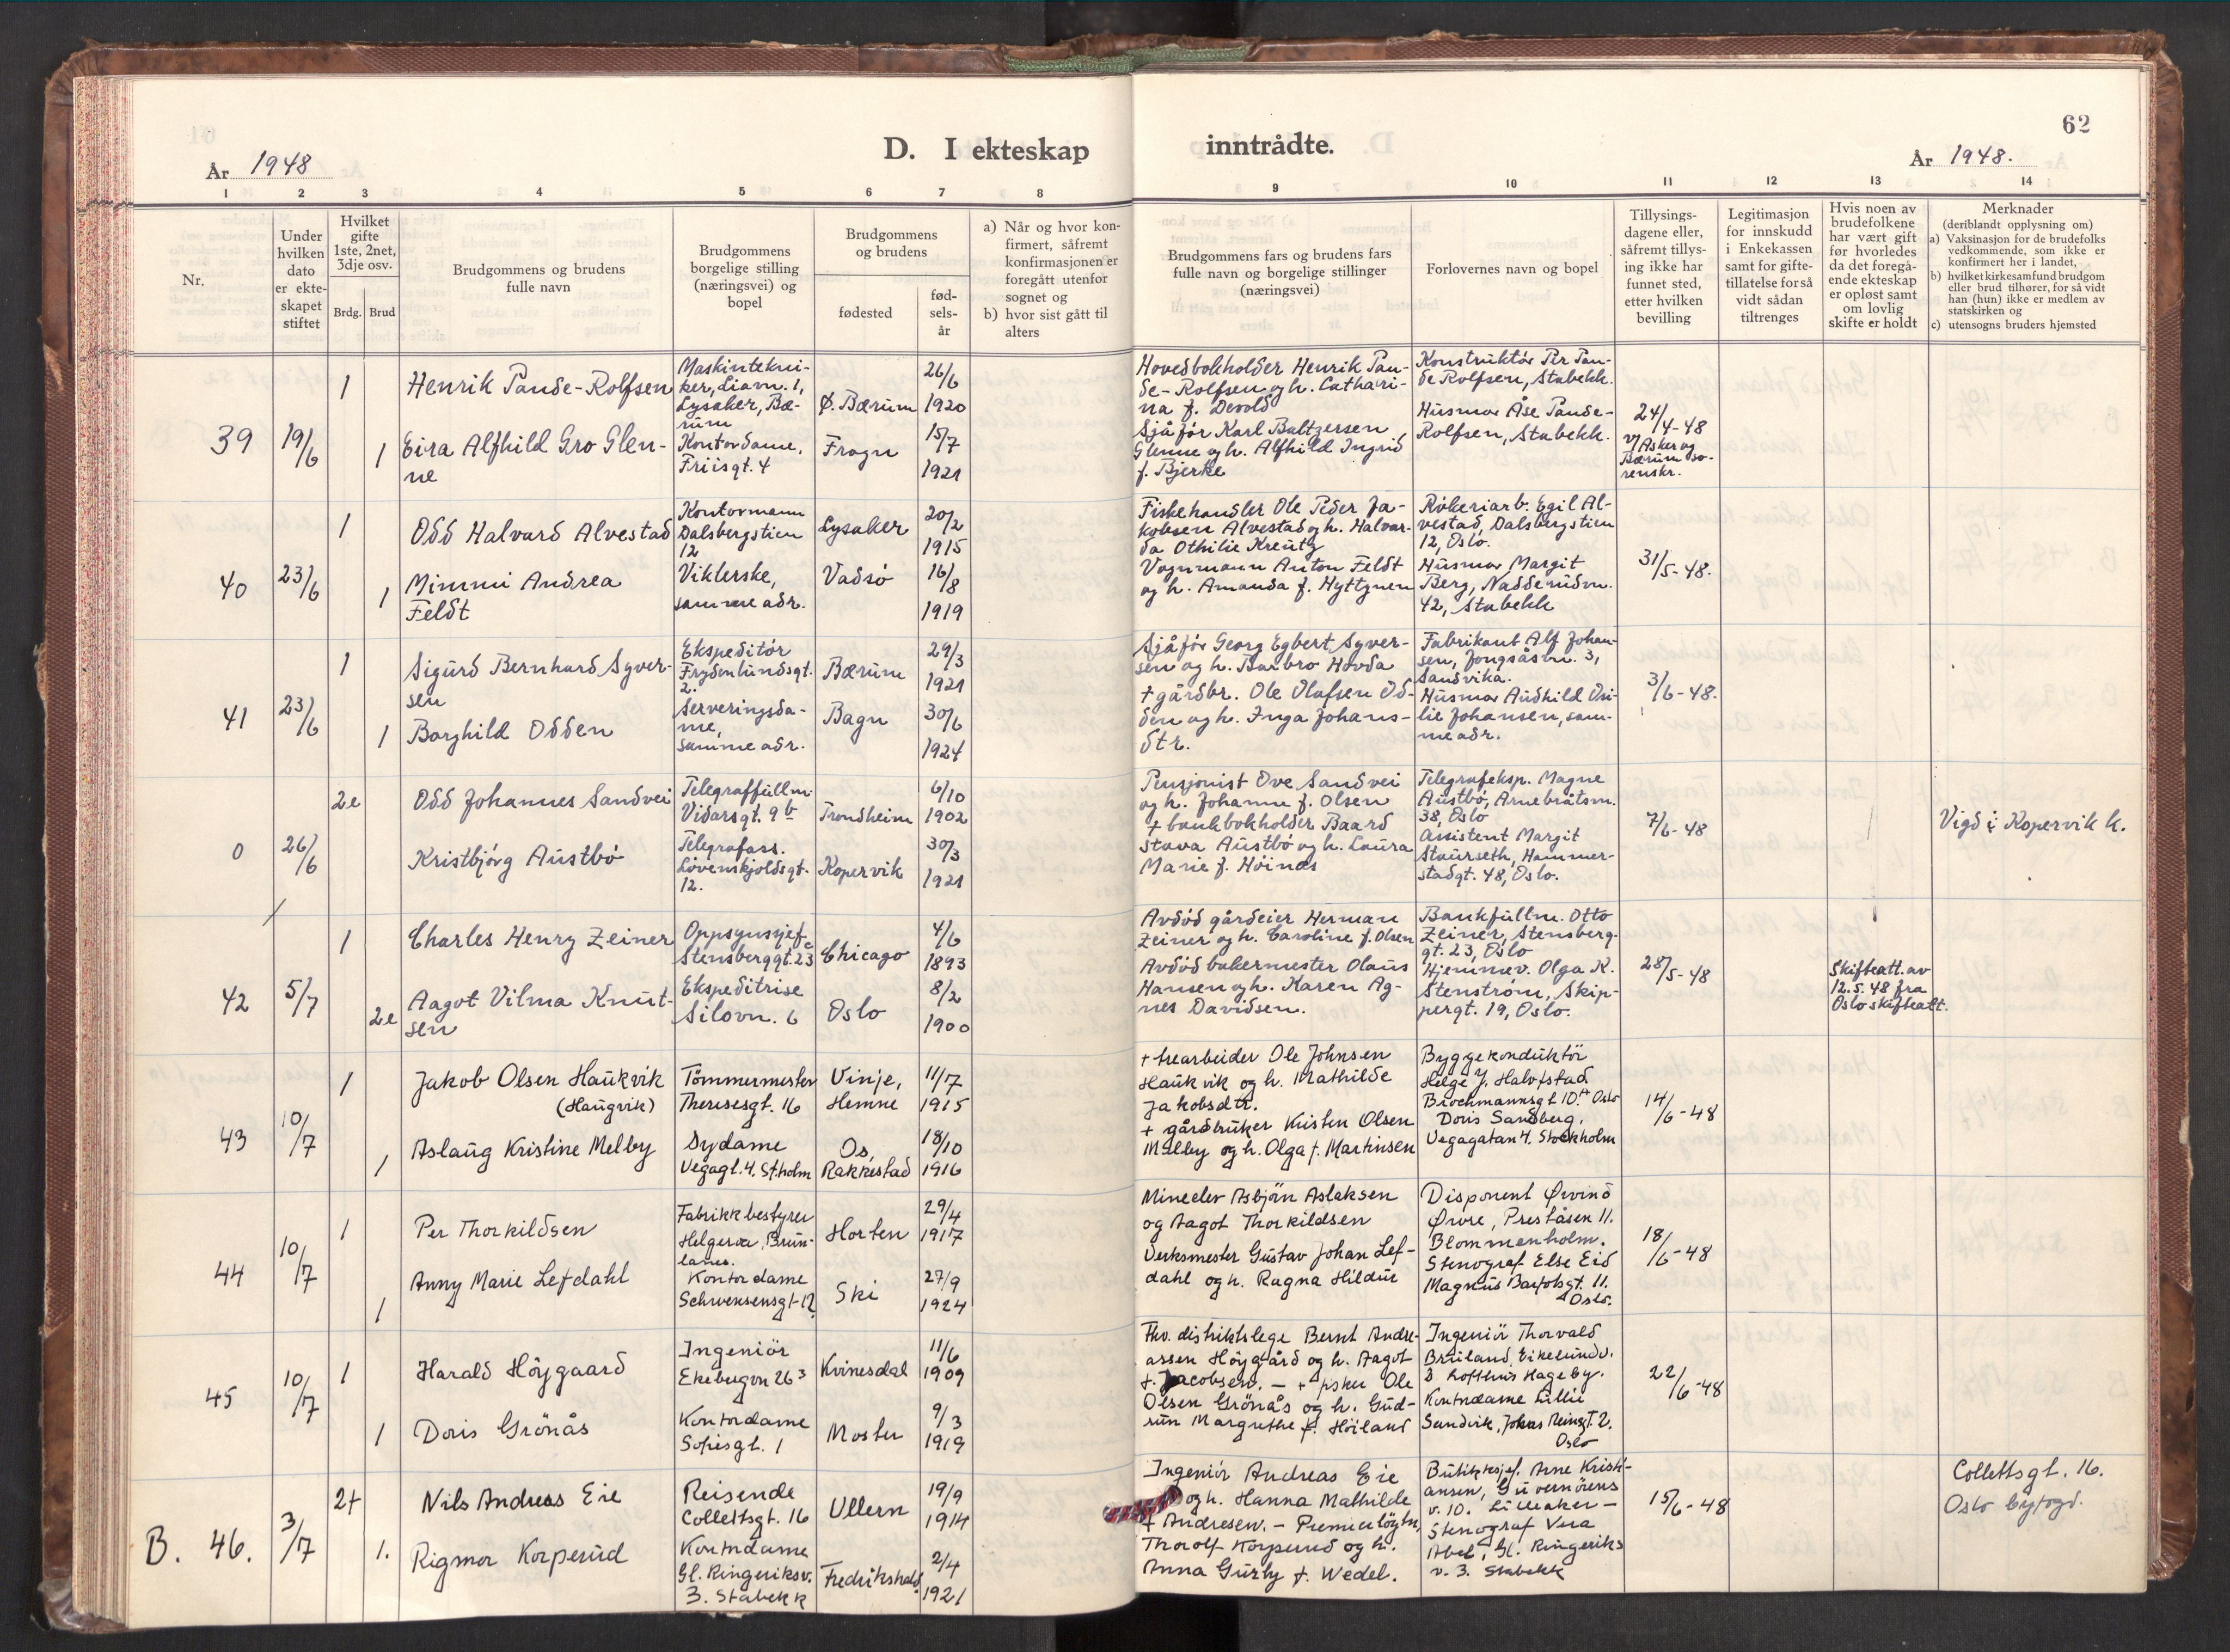 62
D. I ekteskap inntrådte.
År 1948
År 1948.
1 2 3 4 5 6 7 8 9 10 11 12 13 14
Nr.
Under
hvilken
dato
er ekte-
skapet
stiftet
Hvilket
gifte
1ste, 2net,
3dje osv.
Brdg. Brud
Brudgommens og brudens
fulle navn
Brudgommens
borgelige stilling
(næringsvei) og
bopel
Brudgommens
og brudens
fødested
fød-
sels-
år
a) Når og hvor kon-
firmert, såfremt
konfirmasjonen er
foregått utenfor
sognet og
b) hvor sist gått til
alters
Brudgommens fars og brudens fars
fulle navn og borgelige stillinger
(næringsvei)
Forlovernes navn og bopel
Tillysings-
dagene eller,
såfremt tillys-
ing ikke har
funnet sted,
etter hvilken
bevilling
Legitimasjon
for innskudd
i Enkekassen
samt for gifte-
tillatelse for så
vidt sådan
tiltrenges
Hvis noen av
brudefolkene
har vært gift
før hvorledes
da det foregå-
ende ekteskap
er opløst samt
om lovlig
skifte er holdt
Merknader
(deriblandt opplysning om)
a) Vaksinasjon for de brudefolks
vedkommende, som ikke er
konfirmert her i landet,
b) hvilket kirkesamfund brudgom
eller brud tilhører, for så vidt
han (hun) ikke er medlem av
statskirken og
c) utensogns bruders hjemsted
39
19/6
1
Henrik Pande-Rolfsen
Maskintekni-
ker, Liavn. 1,
Lysaker, Bæ-
rum
Ø. Bærum
26/6
1920
1
Eira Alfhild Gro Glen-
ne
Kontordame,
Friisgt. 4
Frogn
15/7
1921
Hovedbokholder Henrik Pan-
de-Rolfsen og h. Cathari-
na f. Devold
Sjåfør Karl Baltzersen
Glenne og h. Alfhild Ingrid
f. Bjerke
Konstruktør Per Pan-
de Rolfsen, Stabekk.
Husmor Åse Pande-
Rolfsen, Stabekk.
24/4-48
v/ Asker og
Bærum so-
renskr.
40
23/6
1
Odd Halvard Alvestad
Kontormann
Dalsbergstien
12
Lysaker
20/2
1915
1
Mimmi Andrea
Feldt
Viklerske,
samme adr.
Vadsø
16/8
1919
Fiskehandler Ole Peder Ja-
kobsen Alvestad og h. Halvar-
da Othilie Kreutz
Vognmann Anton Feldt
og h. Amanda f. Hyttynen
Røkeriarb. Egil Al-
vestad, Dalsbergstien
12, Oslo.
Husmor Margit
Berg, Nadderudvn.
42, Stabekk
31/5-48.
41
23/6
1
Sigurd Bernhard Syver-
sen
Ekspeditør
Frydenlundsgt.
2.
Bærum
29/3
1921
1
Borghild Odden
Serveringsda-
me,
samme adr.
Bagn
30/6
1924
Sjåfør Georg Egbert Syver-
sen og h. Barbro Hovda
+ gårdbr. Ole Olafsen Od-
den og h. Inga Johans-
dtr.
Fabrikant Alf Johan-
sen, Jongsåsvn. 3,
Sandvika.
Husmor Audhild Osi-
lie Johansen, sam-
me adr.
3/6-48.
0
26/6
2e
Odd Johannes Sandvei
Telegraffullm.
Vidarsgt. 9b
Trondheim
6/10
1902
Kristbjørg Austbø
Telegrafass.
Løvenskjoldsgt.
12.
Kopervik
30/3
1921
Pensjonist Ove Sandvei
og h. Johanne f. Olsen
+ bankbokholder Baard
Stava Austbø og h. Laura
Marie f. Høines
Telegrafeksp. Magne
Austbø, Arnebråtsvn.
38, Oslo
Assistent Margit
Staurseth, Hammer-
stadgt. 48, Oslo.
7/6-48
Vigd i Kopervik k.
42
5/7
1
Charles Henry Zeiner
Oppsynssjef
Stensberggt. 23 c
Chicago
4/6
1893
2e
Aagot Vilma Knut-
sen
Ekspeditrise
Silovn. 6
Oslo
8/2
1900
Avdød gårdeier Herman
Zeiner og h. Caroline f. Olsen
Avdød bakermester Olaus
Hansen og h. Karen Ag-
nes Davidsen.
Bankfullm. Otto
Zeiner, Stensberg-
gt. 23, Oslo
Hjemmev. Olga K.
Stenstrøm, Skip-
pergt. 19, Oslo.
28/5-48
Skifteatt. av
12.5.48 fra
Oslo skifteatt.
43
10/7
1
Jakob Olsen Haukvik
(Haugvik)
Tömmermester
Theresesgt. 16
Vinje,
Hemne
11/7
1915
1
Aslaug Kristine Melby
Sydame
Vegagt. 4. St.holm
Os,
Rakkestad
18/10
1916
+ trearbeider Ole Johnsen
Haukvik og h. Mathilde
Jakobsdtr.
+ gårdbruker Kristen Olsen
Melby og h. Olga f. Martinsen
Byggekonduktör
Helge J. Halvfstad
Brochmannsgt. 10. Oslo
Doris Sandberg,
Vegagatan 4. Stockholm
14/6-48
44
10/7
1
Per Thorkildsen
Fabrikkbestyrer
Helgeroa, Brun-
lanes.
Horten
29/4
1917
1
Anny Marie Lefdahl
Kontordame
Schwensensgt. 12
Ski
27/9
1924
Mineelev Asbjörn Aslaksen
og Aagot Thorkildsen
Verksmester Gustav Johan Lef-
dahl og h. Ragna Hildur
Disponent Øvind
Øvre, Preståsen 11.
Blommenholm.
Stenograf Else Eid
Magnus Barfotsgt. 11.
Oslo.
18/6-48
45
10/7
1
Harald Höygaard
Ingeniör
Ekebergvn 26³
Kvinesdal
11/6
1909
1
Doris Grönås
Kontordame
Sofiesgt. 1
Moster
9/3
1919
Fhv. distriktslege Bernt Andre-
assen Höygård og h. Aagot
f. Jacobsen. — + fisker Ole
Olsen Grönås og h. Gud-
run Margrethe f. Höiland
Ingeniör Thorvald
Bruland, Eikelundv.
2 Lofthus Hageby.
Kontordame Lillie
Sundvik, Johs Reinsgt. 2.
Oslo
22/6-48
B. 46.
3/7
2f
Nils Andreas Eie
Reisende
Collettsgt. 16
Ullern
19/9
1914
1.
Rigmor Korperud
Kontordame
Gl. Ringeriksv.
3. Stabekk
Fredrikshald
2/4
1921
Ingeniör Andreas Eie
og h. Hanna Mathilde
f. Andresen. — Premierlöytn,
Thorolf Korperud og h.
Anna Gurly f. Wedel.
Butikksjef. Arne Kristi-
ansen, Guvernörens
v. 10. Lilleaker —
Stenograf Vera
Abel, Gl. Ringeriks
v. 3. Stabekk
15/6-48
Collettsgt. 16.
Oslo byfogd.